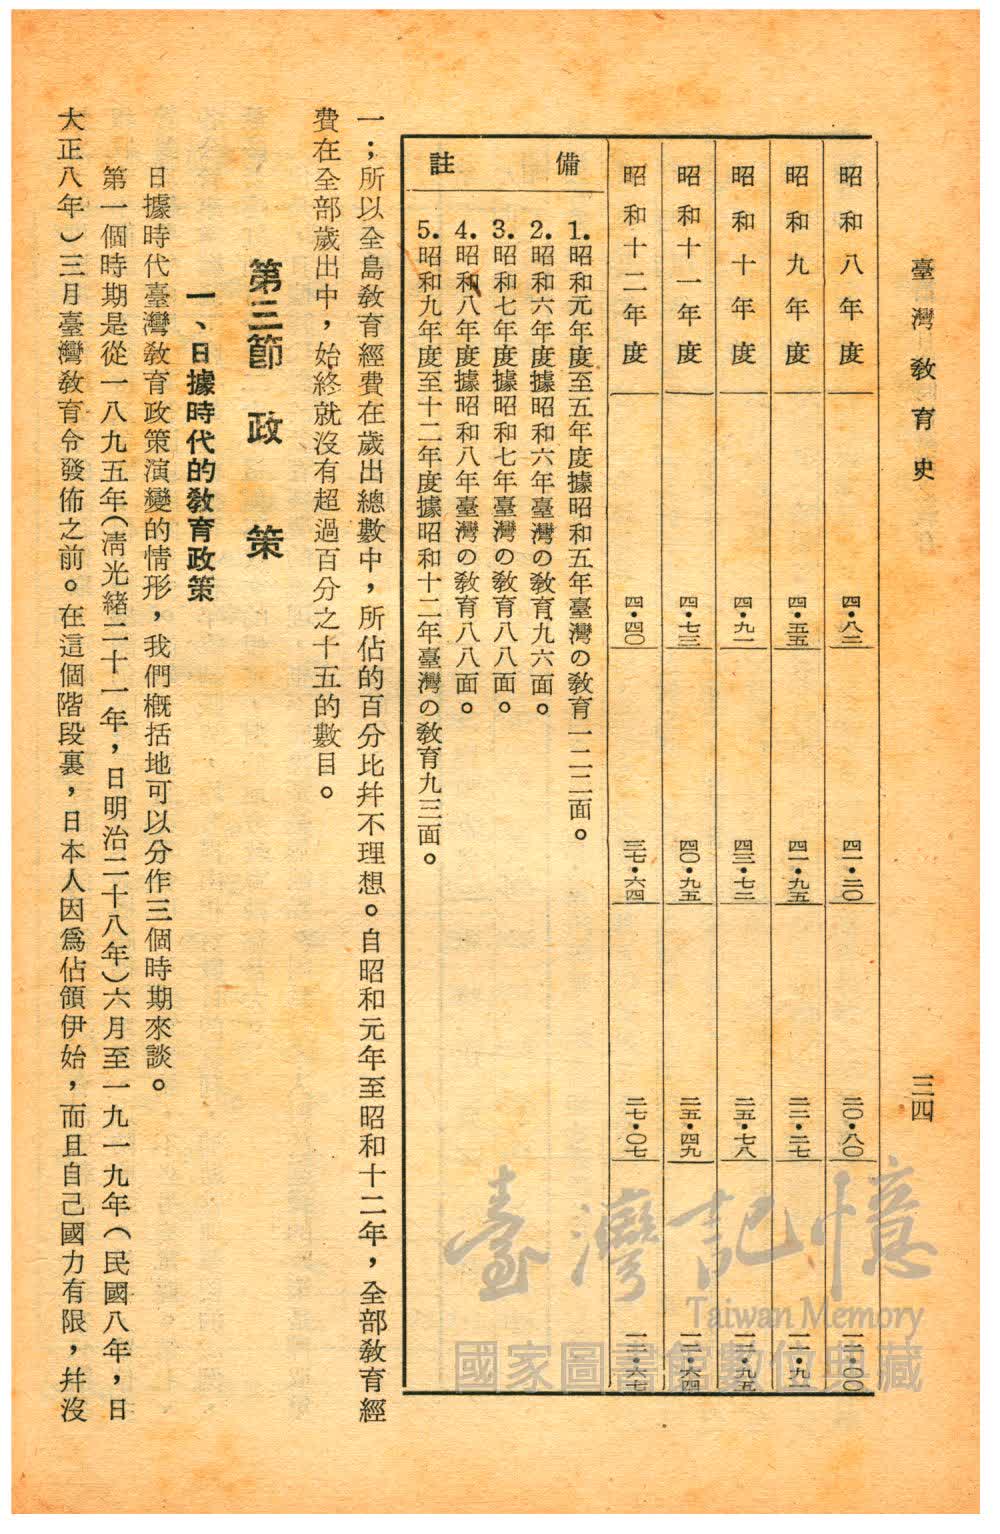 臺灣教育史
三四
昭和八年度 四・八二 四一・二〇 二〇・八〇
昭和九年度 四・五五 四一・九五 二二・二七
昭和十年度 四・九一 四三・七二 二五・七八
昭和十一年度 四・七三 四〇・九五 二五・四九
昭和十二年度 四・四〇 三七・六四 二七・〇七
備註
1.昭和元年度至五年度據昭和五年臺灣の教育一二二面。
2.昭和六年度據昭和六年臺灣の教育九六面。
3.昭和七年度據昭和七年臺灣の教育八八面。
4.昭和八年度據昭和八年臺灣の教育八八面。
5.昭和九年度至十二年度據昭和十二年臺灣の教育九三面。
一；所以全島教育經費在歲出總數中，所佔的百分比幷不理想。自昭和元年至昭和十二年，全部教育經
費在全部歲出中，始終就沒有超過百分之十五的數目。
第三節 政策
一、日據時代的教育政策
日據時代臺灣教育政策演變的情形，我們概括地可以分作三個時期來談。
第一個時期是從一八九五年（清光緒二十一年，日明治二十八年）六月至一九一九年（民國八年，日
大正八年）三月臺灣教育令發佈之前。在這個階段裏，日本人因爲佔領伊始，而且自己國力有限，幷沒
臺灣記憶
Taiwan Memory
國家圖書館數位典藏